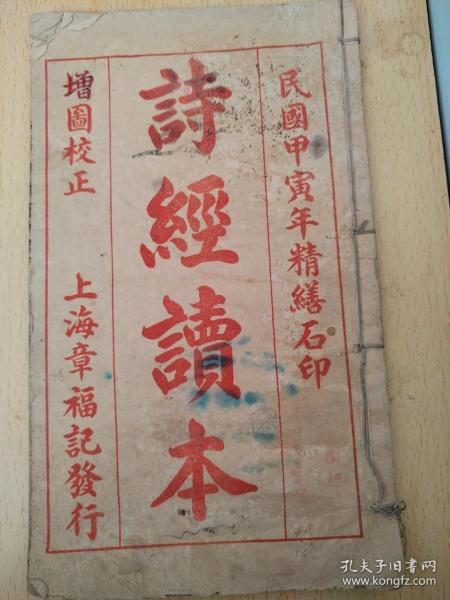 民國甲寅年精繕石印
詩經讀本
增圖校正
上海章福記發行
孔夫子旧书网
www.kongfz.com